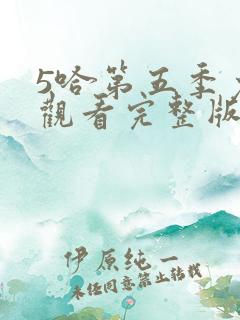 5哈第五季
觀看完整版
伊原纯一
未经同意禁止转载